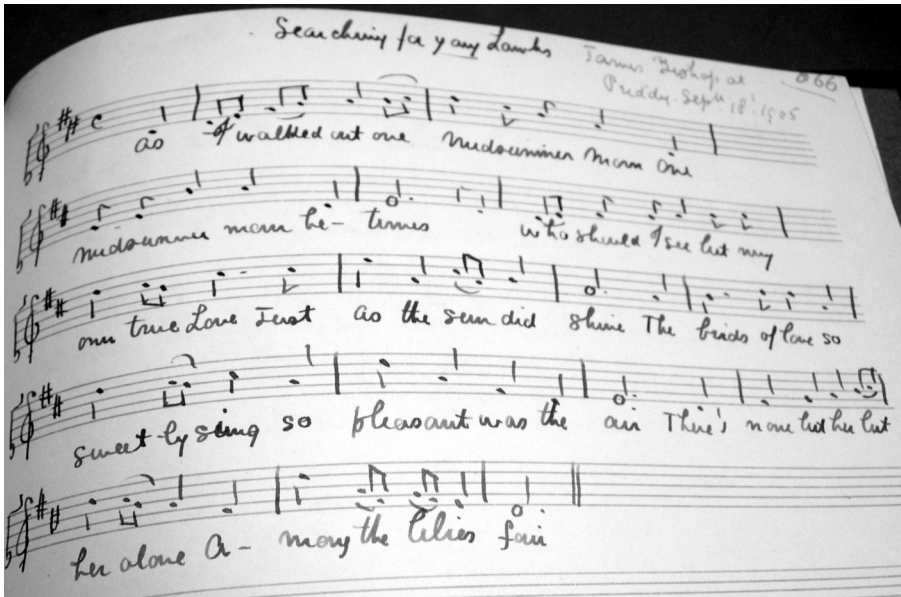 Searching for young Lambs
James Bishop at
Priddy. Sept. 18. 1905
866
as I walked out one midsummer morn one
midsummer morn be- times who should I see but my
own true Love Just as the sun did shine The birds of love so
sweet-ly sing so pleasant was the air There's none but her but
her alone A- mong the lilies fair